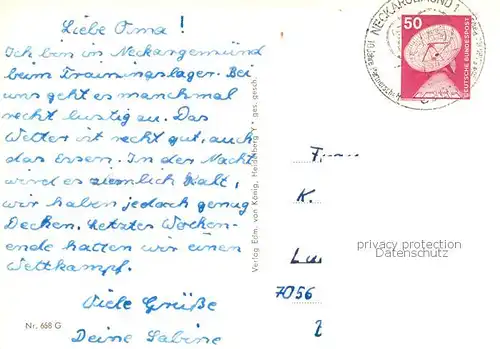 Liebe Oma!
Ich bin in Neckargemünd
beim Trainingslager. Bei
uns geht es manchmal
recht lustig zu. Das
Wetter ist recht gut, auch
das Essen. In der Nacht
wird es ziemlich kalt,
wir haben jedoch genug
Decken. Letztes Wochen-
ende hatten wir einen
Wettkampf.
Viele Grüße
Deine Sabine
Nr. 668 G
Verlag Edm. von König, Heidelberg ges. gesch.
50
DEUTSCHE BUNDESPOST
NECKARGEMÜND 1
K.
7056
privacy protection
Datenschutz